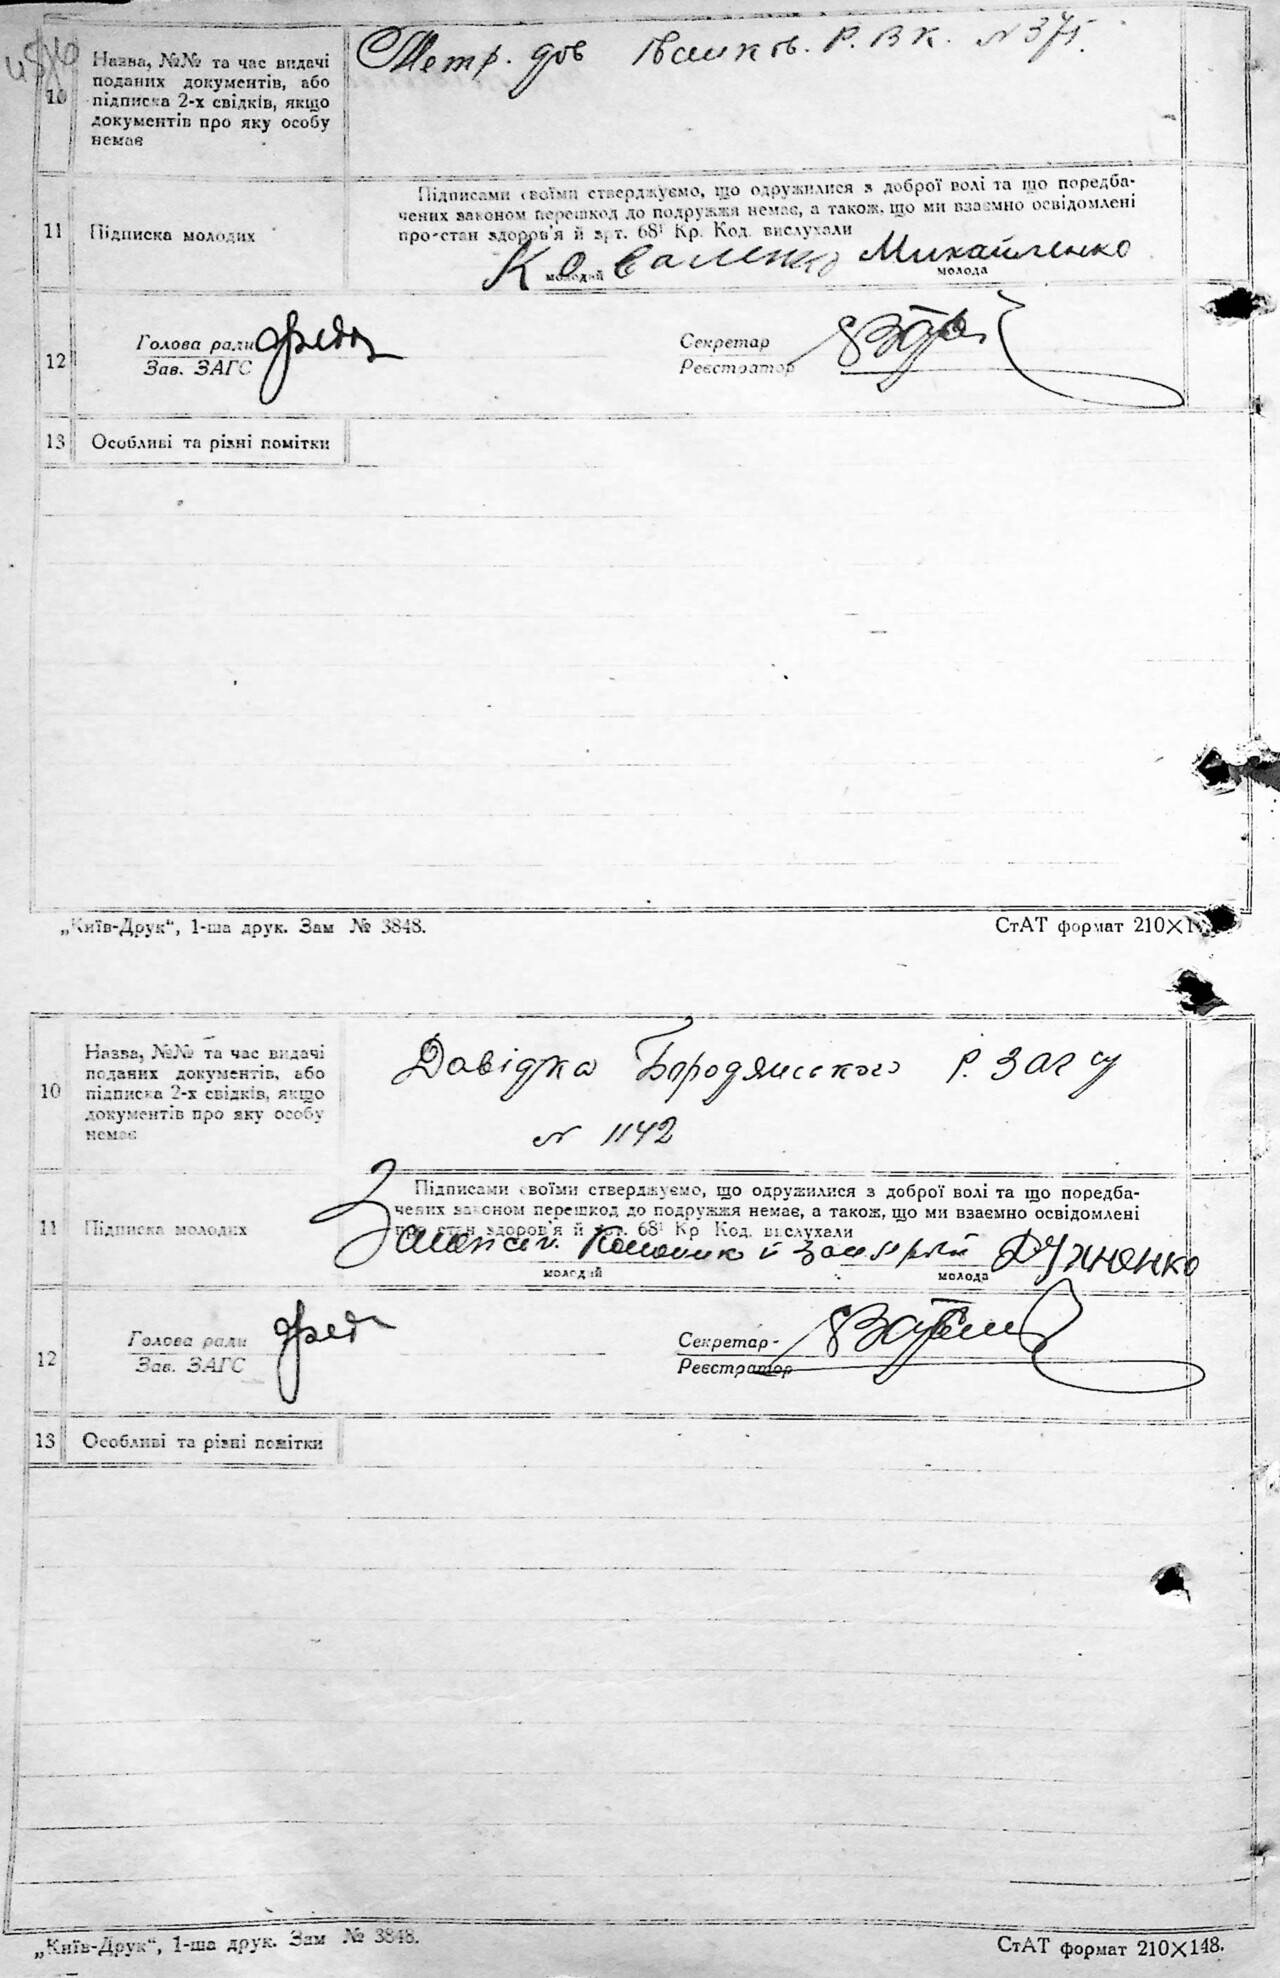 10 Назва, №№ та час видачі
поданих документів, або
підписка 2-х свідків, якщо
документів про яку особу
немає
Метр. дов Р. В К. N 371.
Підписами своїми стверджуємо, що одружилися з доброї волі та що передба-
чених законом перешкод до подружжя немає, а також, що ми взаємно освідомлені
про стан здоров'я й арт. 68¹ Кр. Код. вислухали
11 Підписка молодих
Коваленко Михайленко
молодий молода
12 Голова ради Секретар
Зав. ЗАГС Реєстратор
13 Особливі та різні помітки
„Київ-Друк“, 1-ша друк. Зам № 3848. СтАТ формат 210×1
10 Назва, №№ та час видачі
поданих документів, або
підписка 2-х свідків, якщо
документів про яку особу
немає
Довідка Бородянського Р. Загу
N 1142
Підписами своїми стверджуємо, що одружилися з доброї волі та що передба-
чених законом перешкод до подружжя немає, а також, що ми взаємно освідомлені
про стан здоров'я й арт. 68¹ Кр Код. вислухали
11 Підписка молодих
За
молодий молода
12 Голова ради Секретар
Зав. ЗАГС Реєстратор
13 Особливі та різні помітки
„Київ-Друк“, 1-ша друк. Зам № 3848. СтАТ формат 210×148.